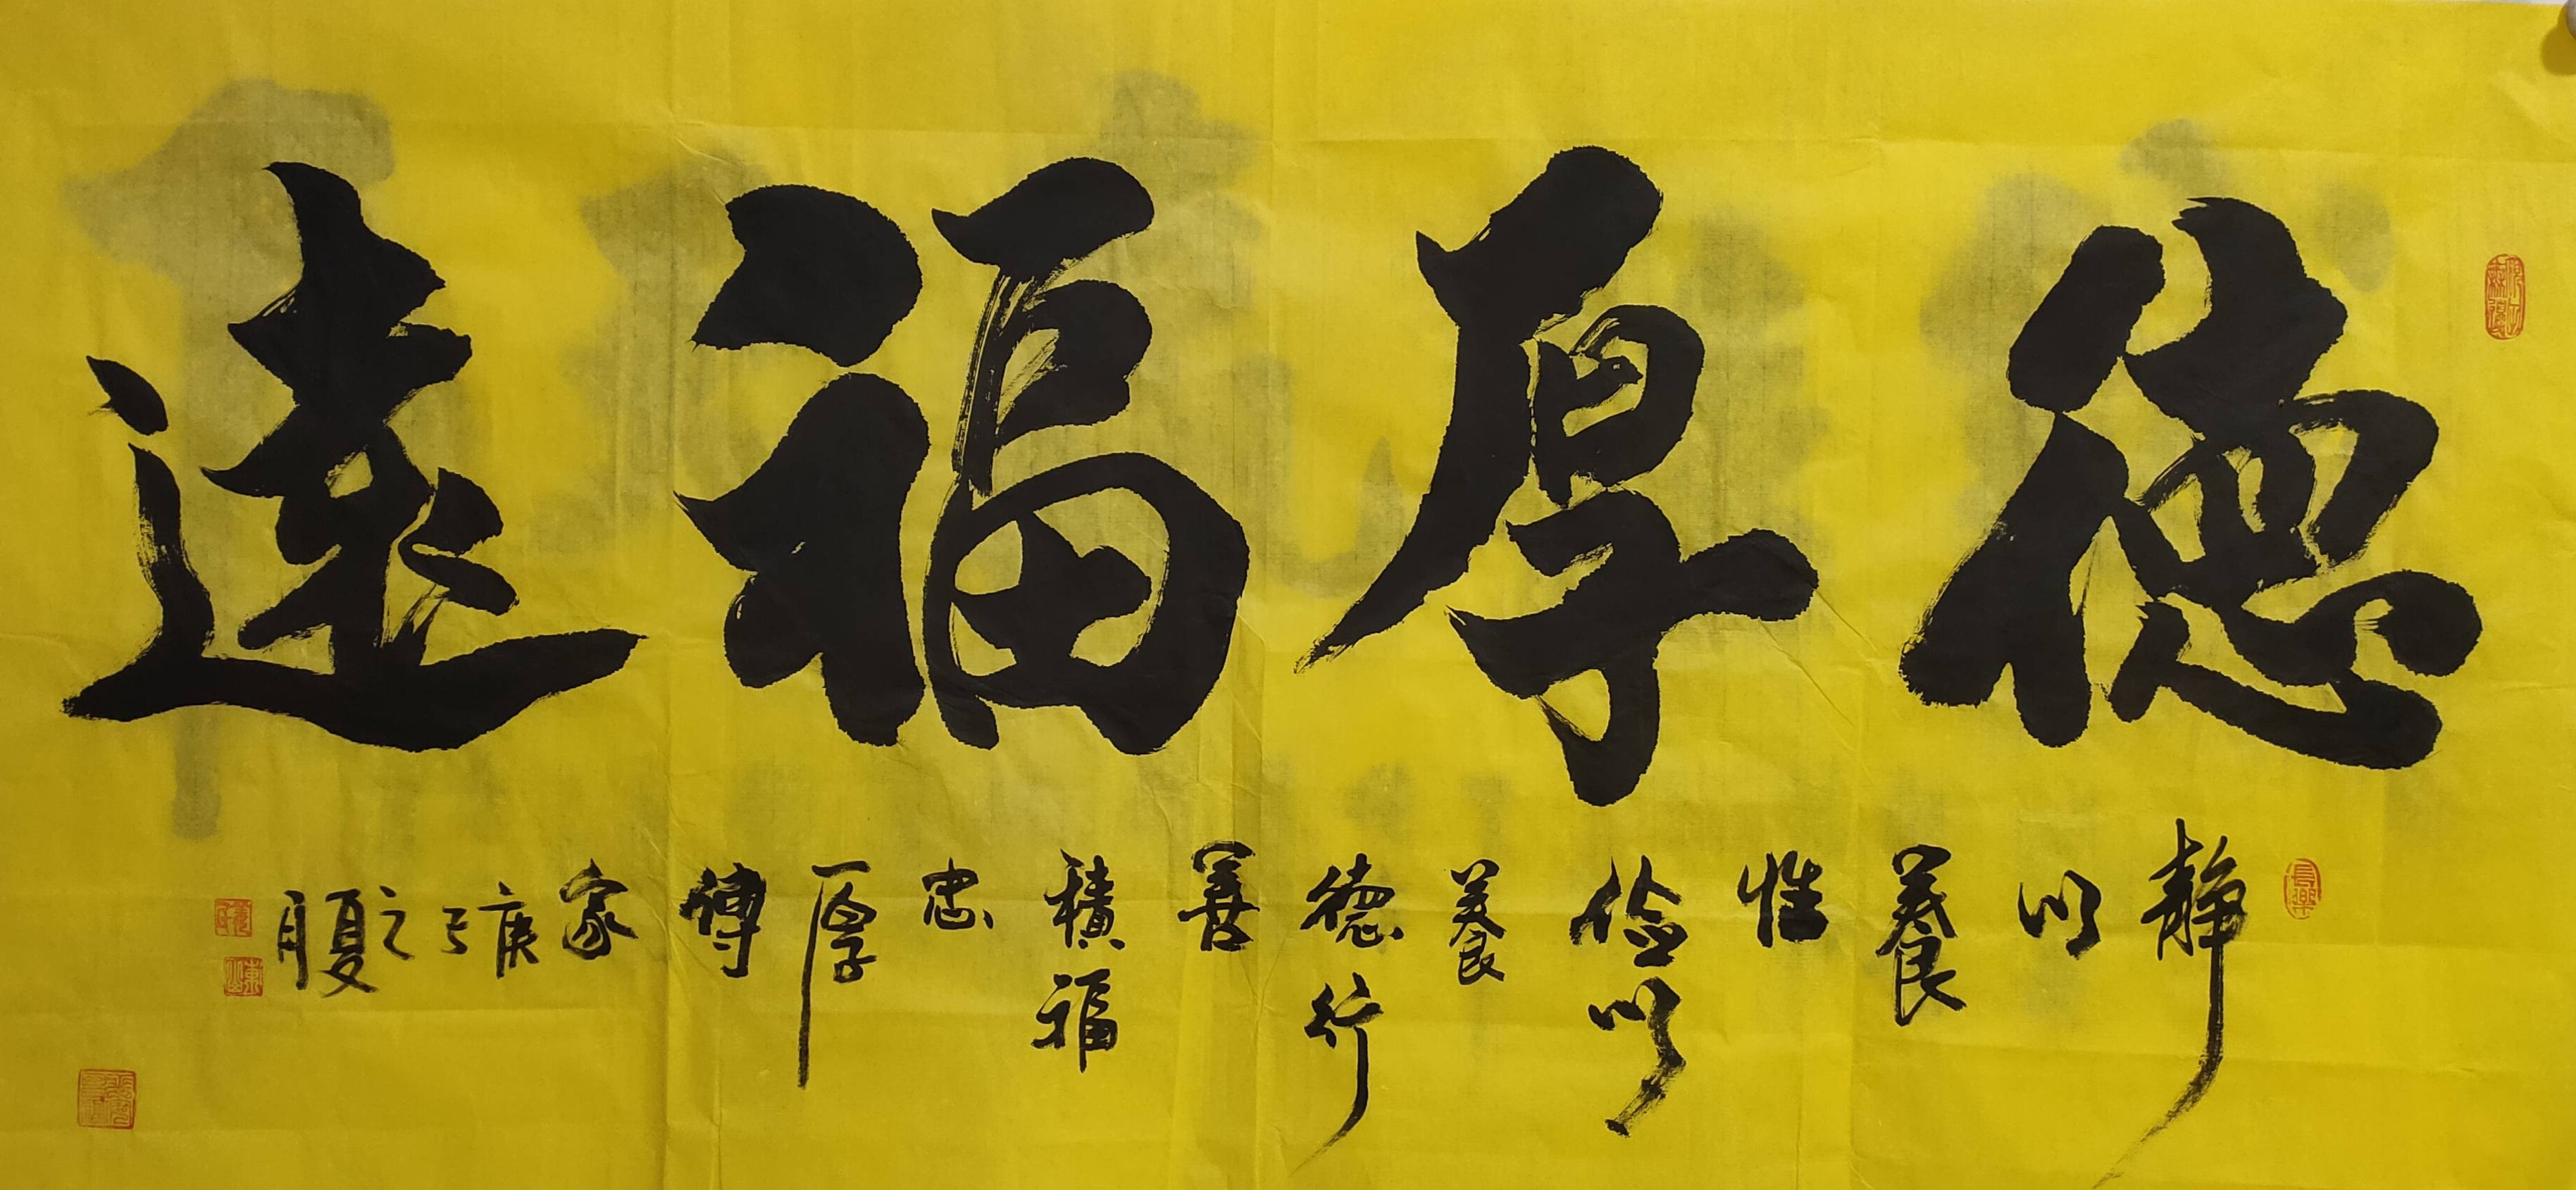 德厚福遠
靜以養性儉以養德行善積福忠厚傳家庚子之夏月
長樂